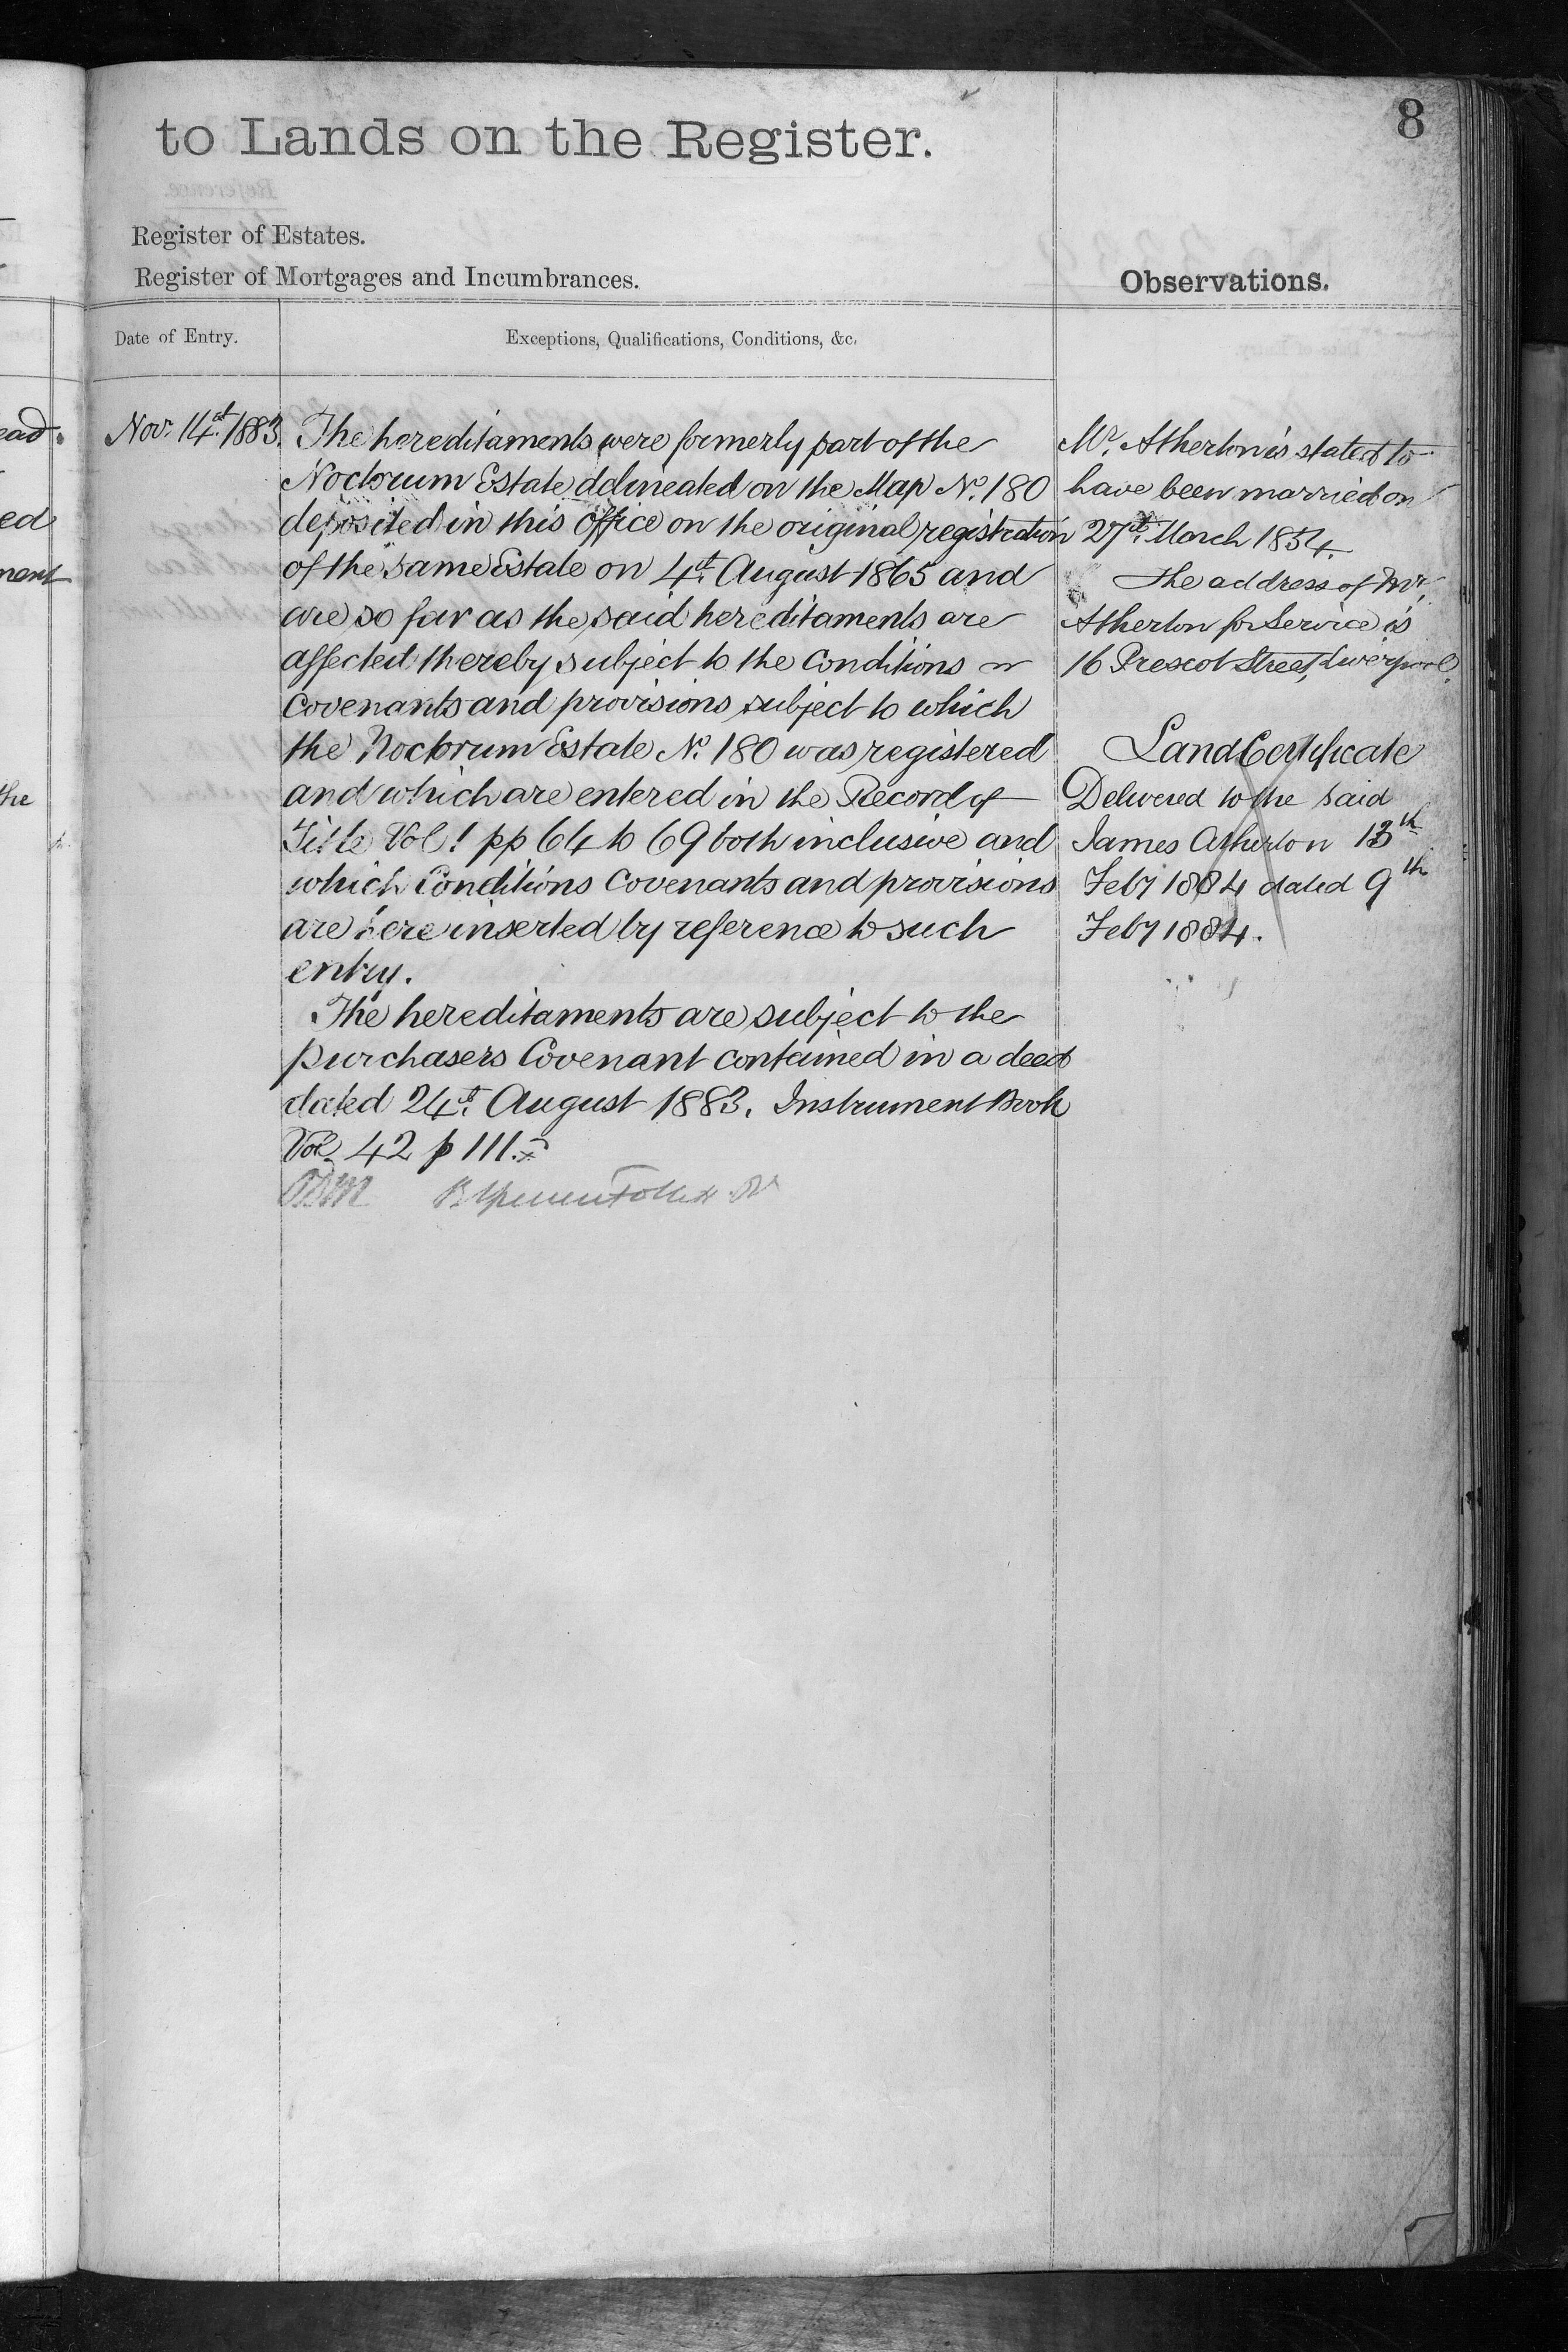 8
to Lands on the Register.
Register of Estates.
Register of Mortgages and Incumbrances.
Observations.
Date of Entry.
Exceptions, Qualifications, Conditions, &c.
Nov: 14th 1883.
The hereditaments were formerly part of the
Noctorum Estate delineated on the Map No. 180
deposited in this office on the original registration
of the same Estate on 4th August 1865 and
are so far as the said hereditaments are
affected thereby subject to the Conditions
Covenants and provisions subject to which
the Noctorum Estate No. 180 was registered
and which are entered in the Record of
Title Vol 1 pp 64 to 69 both inclusive and
which Conditions Covenants and provisions
are here inserted by reference to such
entry.
The hereditaments are subject to the
purchasers Covenant contained in a deed
dated 24th August 1883. Instrument Book
Vol. 42 p 111.
Mr. Atherton is stated to
have been married on
27th March 1854.
The address of Mr.
Atherton for Service is
16 Prescot Street, Liverpool.
Land Certificate
Delivered to the said
James Atherton 13th
Feby 1884 dated 9th
Feby 1884.
ead.
ed
ment
the